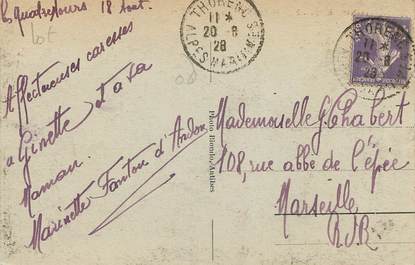 les quatre jours 18 août.
Lot
Affectueuses caresses
a Ginette et a sa
Maman.
Marinette Fanton d'Andon
THORENC
11 *
20 - 8
28
ALPES MARITIMES
THORENC
11 *
20 - 8
28
Photo Biembo-Antibes
Mademoiselle G Chabert
108, rue abbe de l'épée
Marseille
B.d.R.